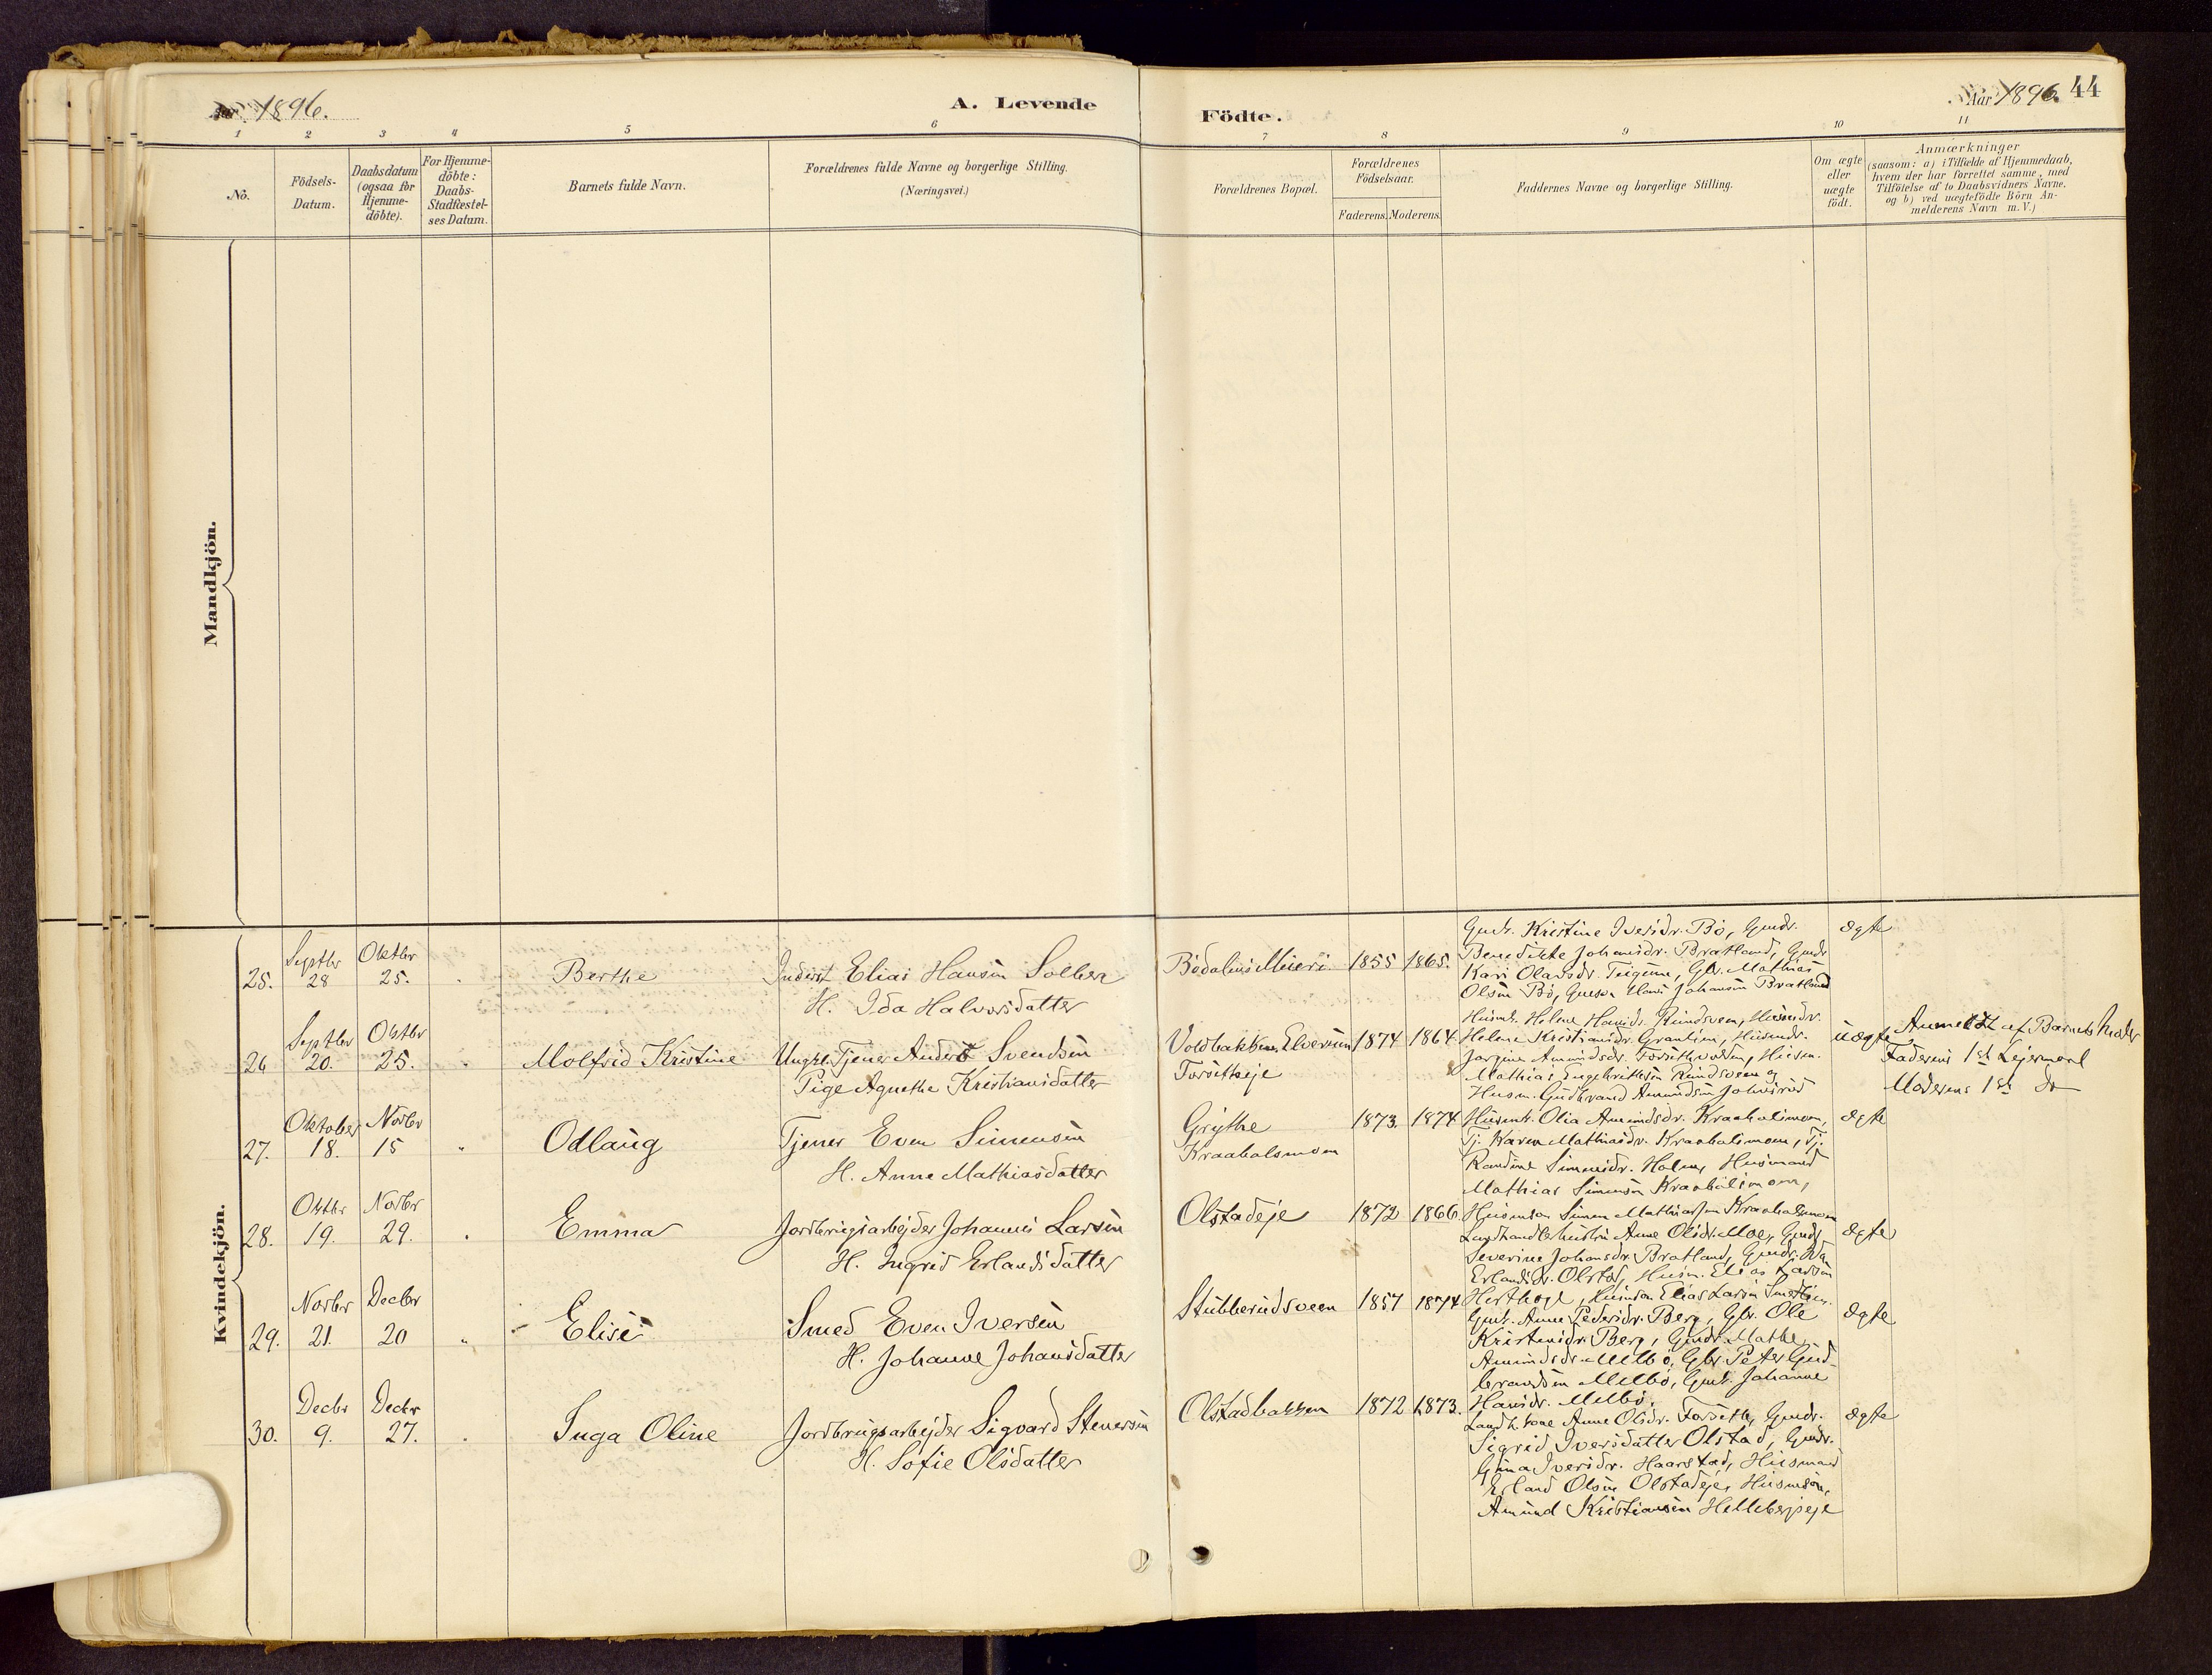 Aar 1896.
A. Levende
Födte.
Aar 1896. 44
1 2 3 4 5 6 7 8 9 10 11
No.
Födsels-Datum.
Daabsdatum (ogsaa for Hjemme-döbte).
For Hjemme-döbte: Daabs-Stadfæstel-ses Datum.
Barnets fulde Navn.
Forældrenes fulde Navne og borgerlige Stilling. (Næringsvei.)
Forældrenes Bopæl.
Forældrenes Födselsaar.
Faderens. Moderens.
Faddernes Navne og borgerlige Stilling.
Om ægte eller uægte födt.
Anmærkninger
(saasom: a) i Tilfælde af Hjemmedaab,
hvem der har forrettet samme, med
Tilföielse af to Daabsvidners Navne.
og b) ved uægtefödte Börn An-
melderens Navn m. V.)
Mandkjön.
Kvindekjön.
25. Septbr 28 Oktbr 25. Berthe
Inderst Elias Hansen Solberg
H. Ida Halvorsdatter
Bödalens Meieri 1855 1865.
Gmk. Kristine Iversdr. Bö, Gmdr.
Benedikte Johansdr. Bratland, Gmdr
Kari Olavsdr. Teigene, Gbr. Mathias
Olsen Bö, Gmsön Hans Johansen Bratland
ægte
26 Septbr 20. Oktbr 25. Molfrid Kristine
Ungk. Tjener Anders Svendsen
Pige Agnethe Kristiansdatter
Voldbakken, Elverum
Forsetheje
1874 1864
Husmk. Helene Hansdr. Rundsveen, Husmdr.
Helene Kristiansdr. Granlien, Husmdr.
Jörgine Amundsdr. Forsethvolden, Husm.
Mathias Engebrethsen Rundsveen og
Husm. Gudbrand Amundsen Johnsrud
uægte
Anmeldt af Barnets Moder
Faderens 1st Lejermaal
Moderens 1st do
27. Oktober 18. Novbr 15 Odlaug
Tjener Even Simensen
H. Anne Mathiasdatter
Grythe
Kraabölsmoen
1873. 1874
Husmk. Olia Amundsdr. Kraabölsmoen,
Tj. Karen Mathiasdr. Kraabölsmoen, Tj.
Randine Simensdr. Holme, Husmand
Mathias Simensen Kraabölsmoen,
Husmsön Simen Mathiassen Kraabölsmoen
ægte
28. Oktbr 19. Novbr 29. Emma
Jordbrugsarbejder Johannes Larsen
H. Ingrid Erlandsdatter
Olstadeje 1872 1866.
Landhandlerhustru Anne Olsdr. Moe, Gmdr
Severine Johansdr. Bratland, Gmdr. Ida
Erlandsdr. Olstad, Husm. Elias Larsen
ægte
29. Novbr 21. Decbr 20 Elise
Smed Even Iversen
H. Johanne Johansdatter
Stubberudsveen 1857 1874
Gmk. Anne Pedersdr. Berg, Gbr. Ole
Kristensdr. Berg, Gmdr. Mathe
Amundsdr. Melbö, Gbr. Peter Gud-
brandsen Melbö, Gmk. Johanne
Hansdr. Melbö.
ægte
30. Decbr 9. Decbr 27. Inga Oline
Jordbrugsarbejder Sigvard Stenersen
H. Sofie Olsdatter
Olstadbakken 1872 1873.
Anne Olsdr. Forseth, Gmdr.
Sigrid Iversdatter Olstad, Gmdr.
Gina Iversdr. Haarstad, Husmand
Erland Olsen Olstadeje, Husmsön,
Amund Kristiansen Hellebergeje
ægte